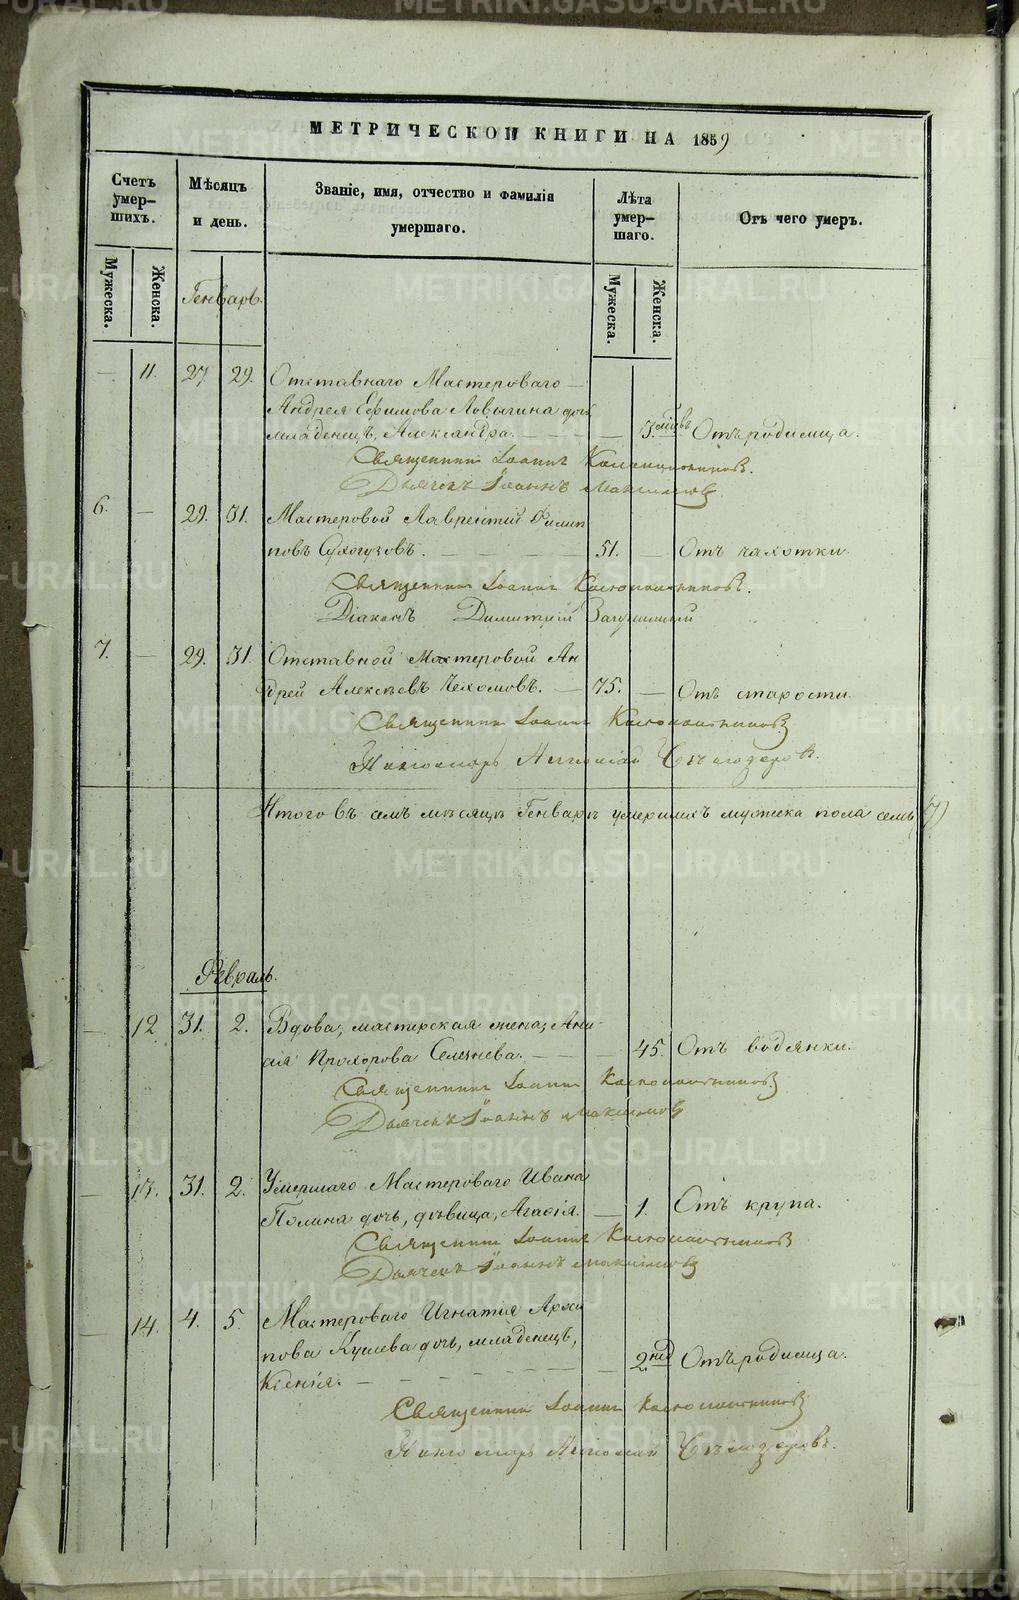 МЕТРИЧЕСКОЙ КНИГИ НА 1859
Счетъ умер-шихъ.
Мѣсяцъ и день.
Званіе, имя, отчество и фамилія умершаго.
Лѣта умер-шаго.
Отъ чего умеръ.
Мужеска.
Женска.
Мужеска.
Женска.
Генварь.
— 11. 27 29. Отставнаго Мастероваго —
Андрея Ефимова Ловыгина дочь
младенецъ, Александра. — — — — 3. мѣс. Отъ родимца.
Священникъ Іоаннъ
Дьячекъ Іоаннъ Максимовъ
6. — 29. 31. Мастеровой Лаврентій Филип
повъ Сухогузовъ. — — — 51. — Отъ чахотки.
Священникъ Іоаннъ
Діаконъ Димитрій
7. — 29. 31. Отставной Мастеровой Ан
дрей Алексѣевъ Чехомовъ. — 75. — Отъ старости.
Священникъ Іоаннъ
Пономарь
Итого въ семъ мѣсяцѣ Генварѣ умершихъ мужеска пола семь (7)
Февраль.
— 12 31. 2. Вдова, мастерская жена, Ани
сія Прохорова Селезнева. — — — 45. Отъ водянки.
Священникъ Іоаннъ
Дьячекъ Іоаннъ Максимовъ
— 13. 31. 2. Умершаго Мастероваго Ивана
дочь, дѣвица, Агафія. — 1. Отъ крупа.
Священникъ Іоаннъ
Дьячекъ Іоаннъ Максимовъ
— 14. 4. 5. Мастероваго Игнатія Архи
пова дочь, младенецъ,
Ксенія. — — — — — — — 2 нед Отъ родимца.
Священникъ Іоаннъ
Пономарь
METRIKI.GASO-URAL.RU